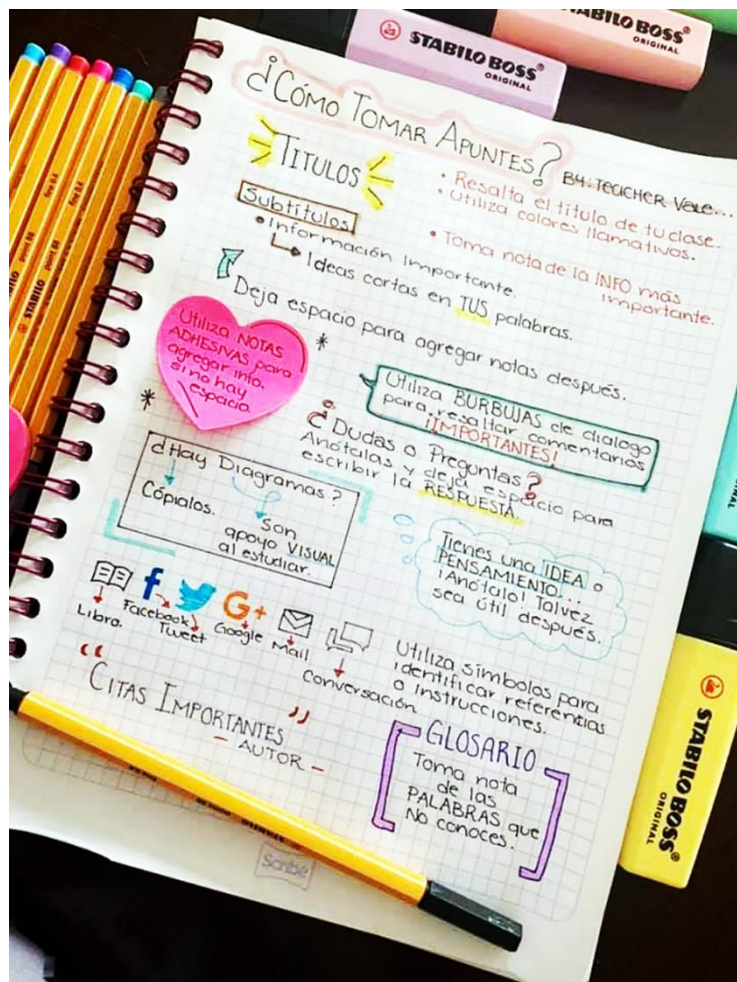 STABILO BOSS
ORIGINAL
STABILO BOSS
ORIGINAL
¿CÓMO TOMAR APUNTES?
By: TEACHER Vale...
TITULOS
• Resalta el título de tu clase.
• Utiliza colores llamativos.
Subtítulos
• Información importante.
Ideas cortas en TUS palabras.
• Toma nota de la INFO más
importante.
Deja espacio para agregar notas después.
Utiliza NOTAS
ADHESIVAS para
agregar info.
si no hay
espacio.
*
Utiliza BURBUJAS de dialogo
para resaltar comentarios
¡IMPORTANTES!
*
¿Dudas o Preguntas?
Anótalas y deja espacio para
escribir la RESPUESTA.
¿Hay Diagramas?
Cópialos.
Son
apoyo VISUAL
al estudiar.
Tienes una IDEA o
PENSAMIENTO...
¡Anótalo! Talvez
sea útil después.
f
G+
Libro.
Facebook
Tweet
Google
Mail
Conversación
Utiliza símbolos para
identificar referencias
o instrucciones.
“CITAS IMPORTANTES”
— AUTOR —
[GLOSARIO
Toma nota
de las
PALABRAS que
No conoces.]
Scribe
STABILO BOSS
ORIGINAL
STABILO
point 88
fine 0.4